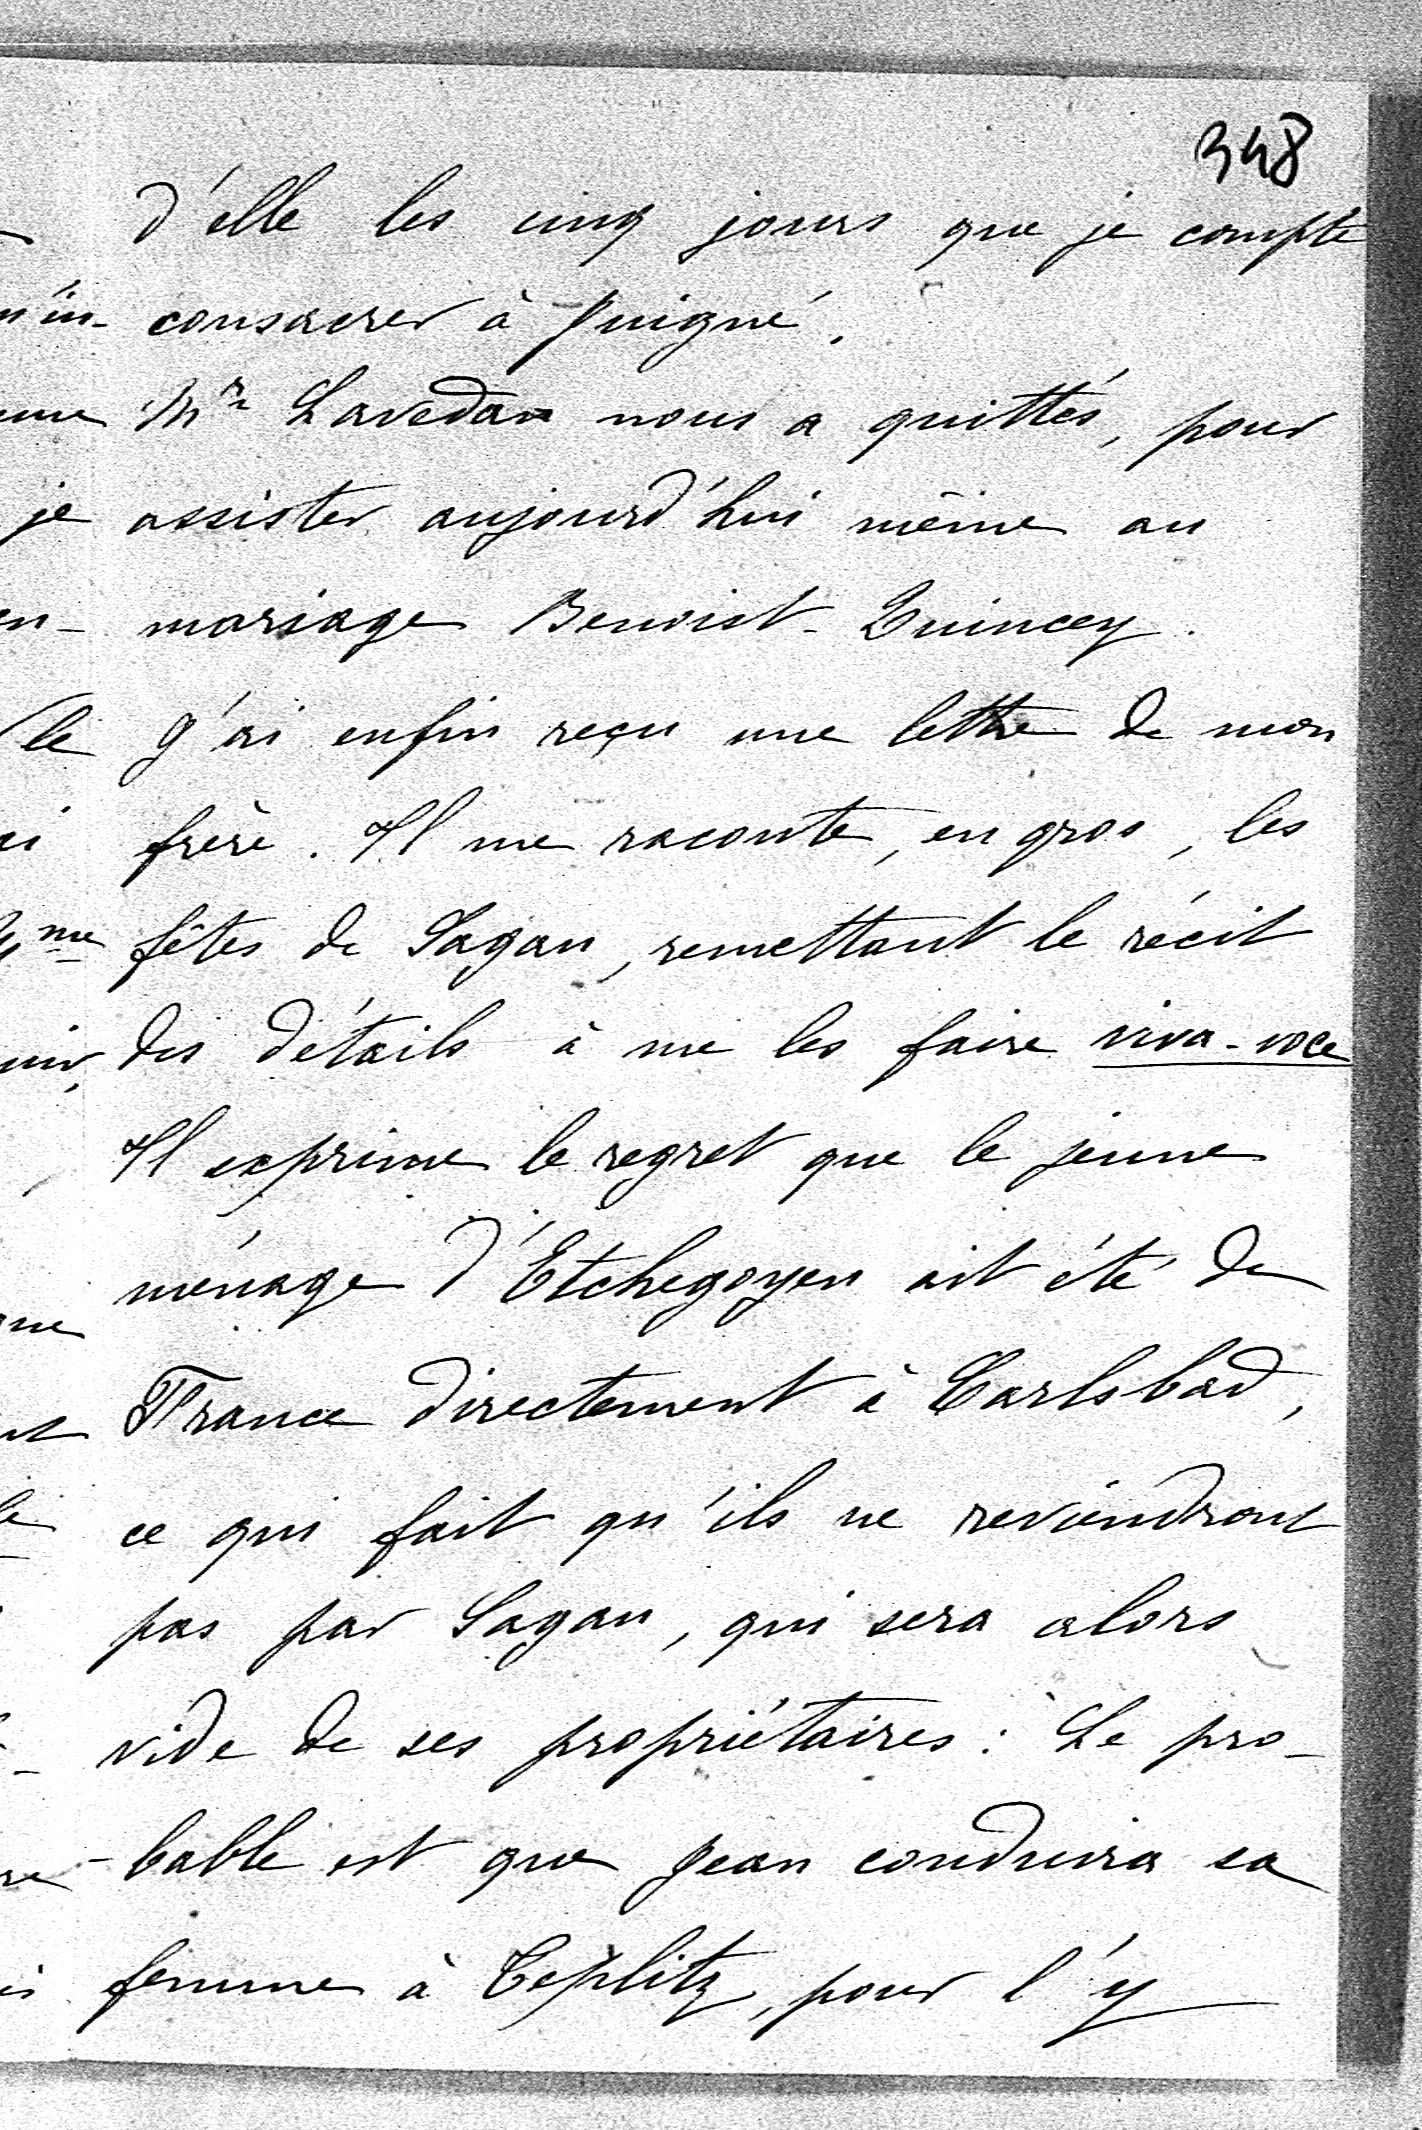 348
d'elle les cinq jours que je compte
consacrer à Juigné.
Mr Lavedan nous a quittés, pour
assister aujourd'hui même au
mariage Benoist-Quincey.
J'ai enfin reçu une lettre de mon
frère. Il me raconte, en gros, les
fêtes de Sagan, remettant le récit
des détails à me les faire viva-voce
Il exprime le regret que le jeune
ménage d'Etchegoyen ait été de
France directement à Carlsbad,
ce qui fait qu'ils ne reviendront
pas par Sagan, qui sera alors
vide de ses propriétaires: Le pro-
bable est que Jean conduira sa
femme à Teplitz, pour l'y